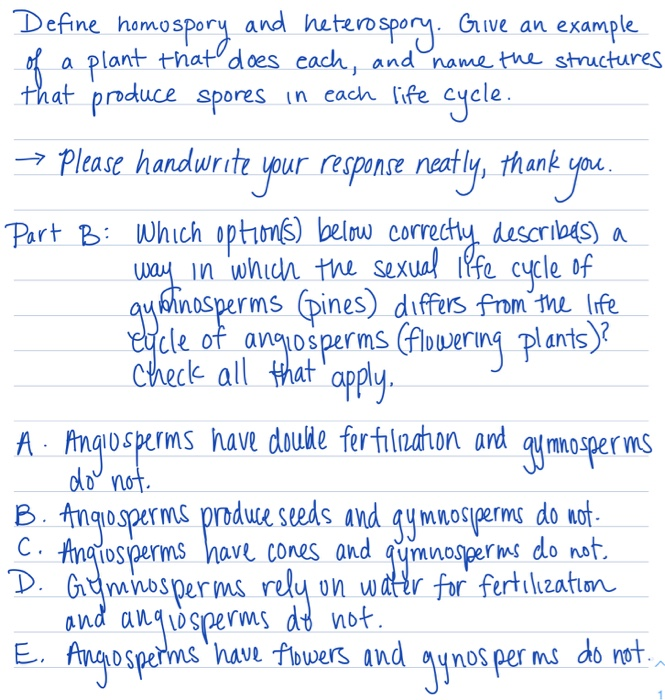 Define homospory and heterospory. Give an example
of a plant that does each, and name the structures
that produce spores in each life cycle.
→ Please handwrite your response neatly, thank you.
Part B: Which option(s) below correctly describe(s) a
way in which the sexual life cycle of
gymnosperms (pines) differs from the life
cycle of angiosperms (flowering plants)?
Check all that apply.
A. Angiosperms have double fertilization and gymnosperms
do not.
B. Angiosperms produce seeds and gymnosperms do not.
C. Angiosperms have cones and gymnosperms do not.
D. Gymnosperms rely on water for fertilization
and angiosperms do not.
E. Angiosperms have flowers and gynosperms do not.